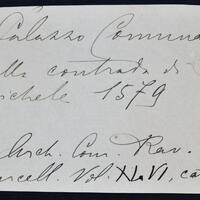 Palazzo Comuna
lla contrada di
ichele 1579
Arch. Com. Rav.
rcell. Vol. XLVI, ca